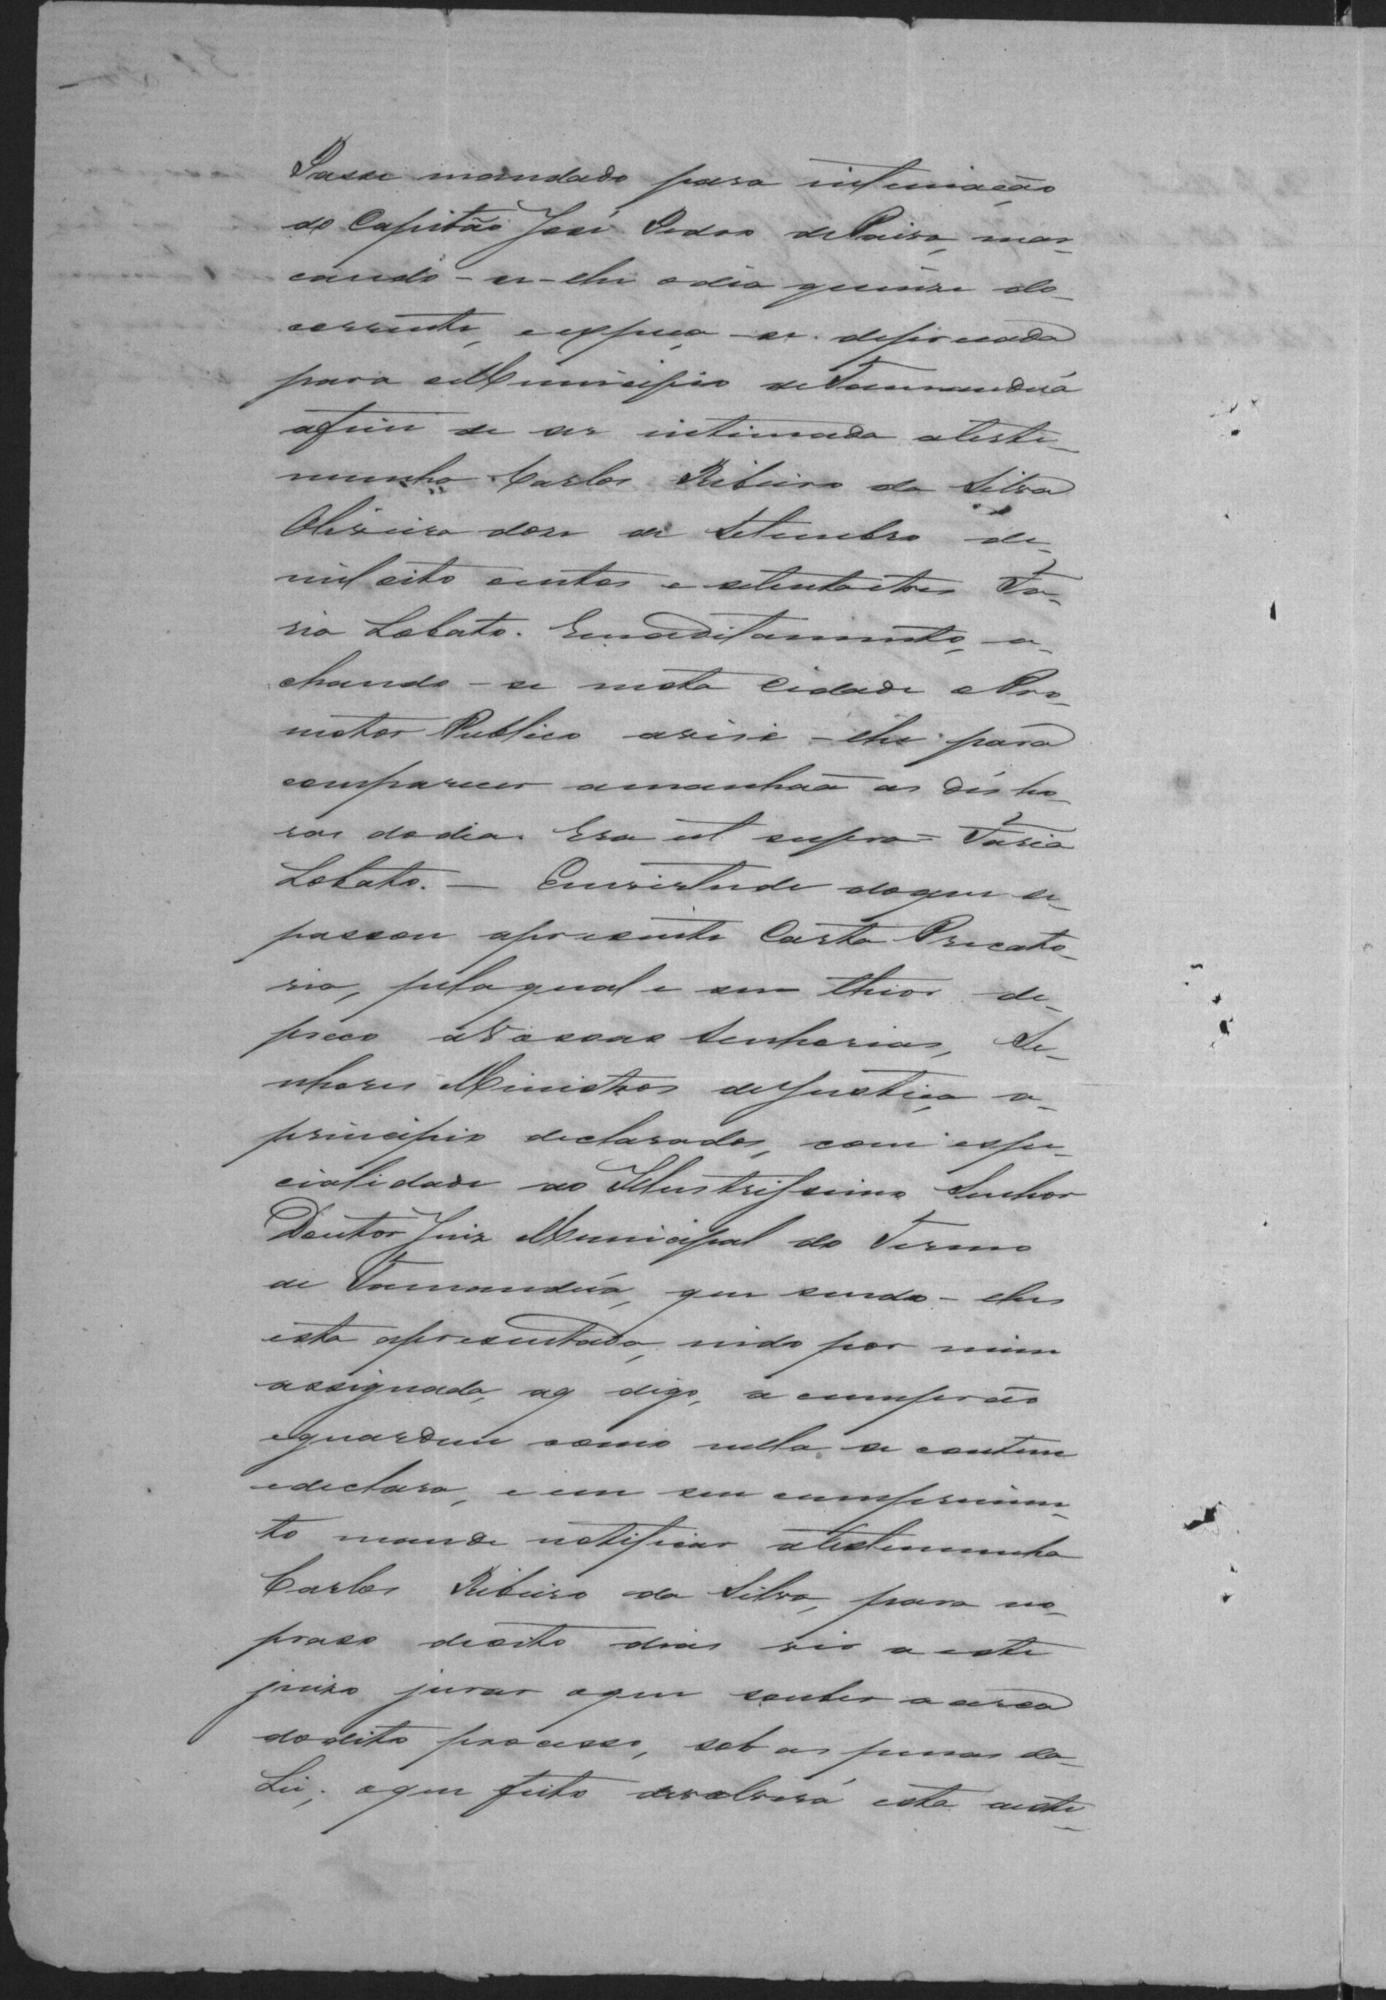 Passe mandado para intimação
do Capitão José Pedro de Paiva, mar-
cando-se-lhe o dia quinze do
corrente, e expeça-se deprecada
para o Municipio de Tamanduá
afim de ser intimada a teste-
munha Carlos Ribeiro da Silva
Oliveira doze de Setembro de
mil oito centos e setenta e tres Fa-
ria Lobato. Em additamento, a-
chando-se nesta Cidade o Pro-
motor Publico avise-lhe para
comparecer amanhaã as dés ho-
ras do dia. Era ut supra = Faria
Lobato. — Em virtude do que se
passou a presente Carta Precato-
ria, pela qual e seu theor de-
preco a Vossas Senhorias, Se-
nhores Ministros de Justiça a
principio declarados, com espe-
cialidade ao Illustrissimo Senhor
Doutor Juiz Municipal do Termo
de Tamanduá, que sendo-lhes
esta apresentada, indo por mim
assignada, ag digo, a cumprão
e guardem como nella se contem
e declara, e em seu cumprimen-
to mande notificar a testemunha
Carlos Ribeiro da Silva, para no
praso de oito dias vir a este
juizo jurar o que souber a cerca
do dito processo, sob as penas da
Lei; o que feito devolverá esta a este